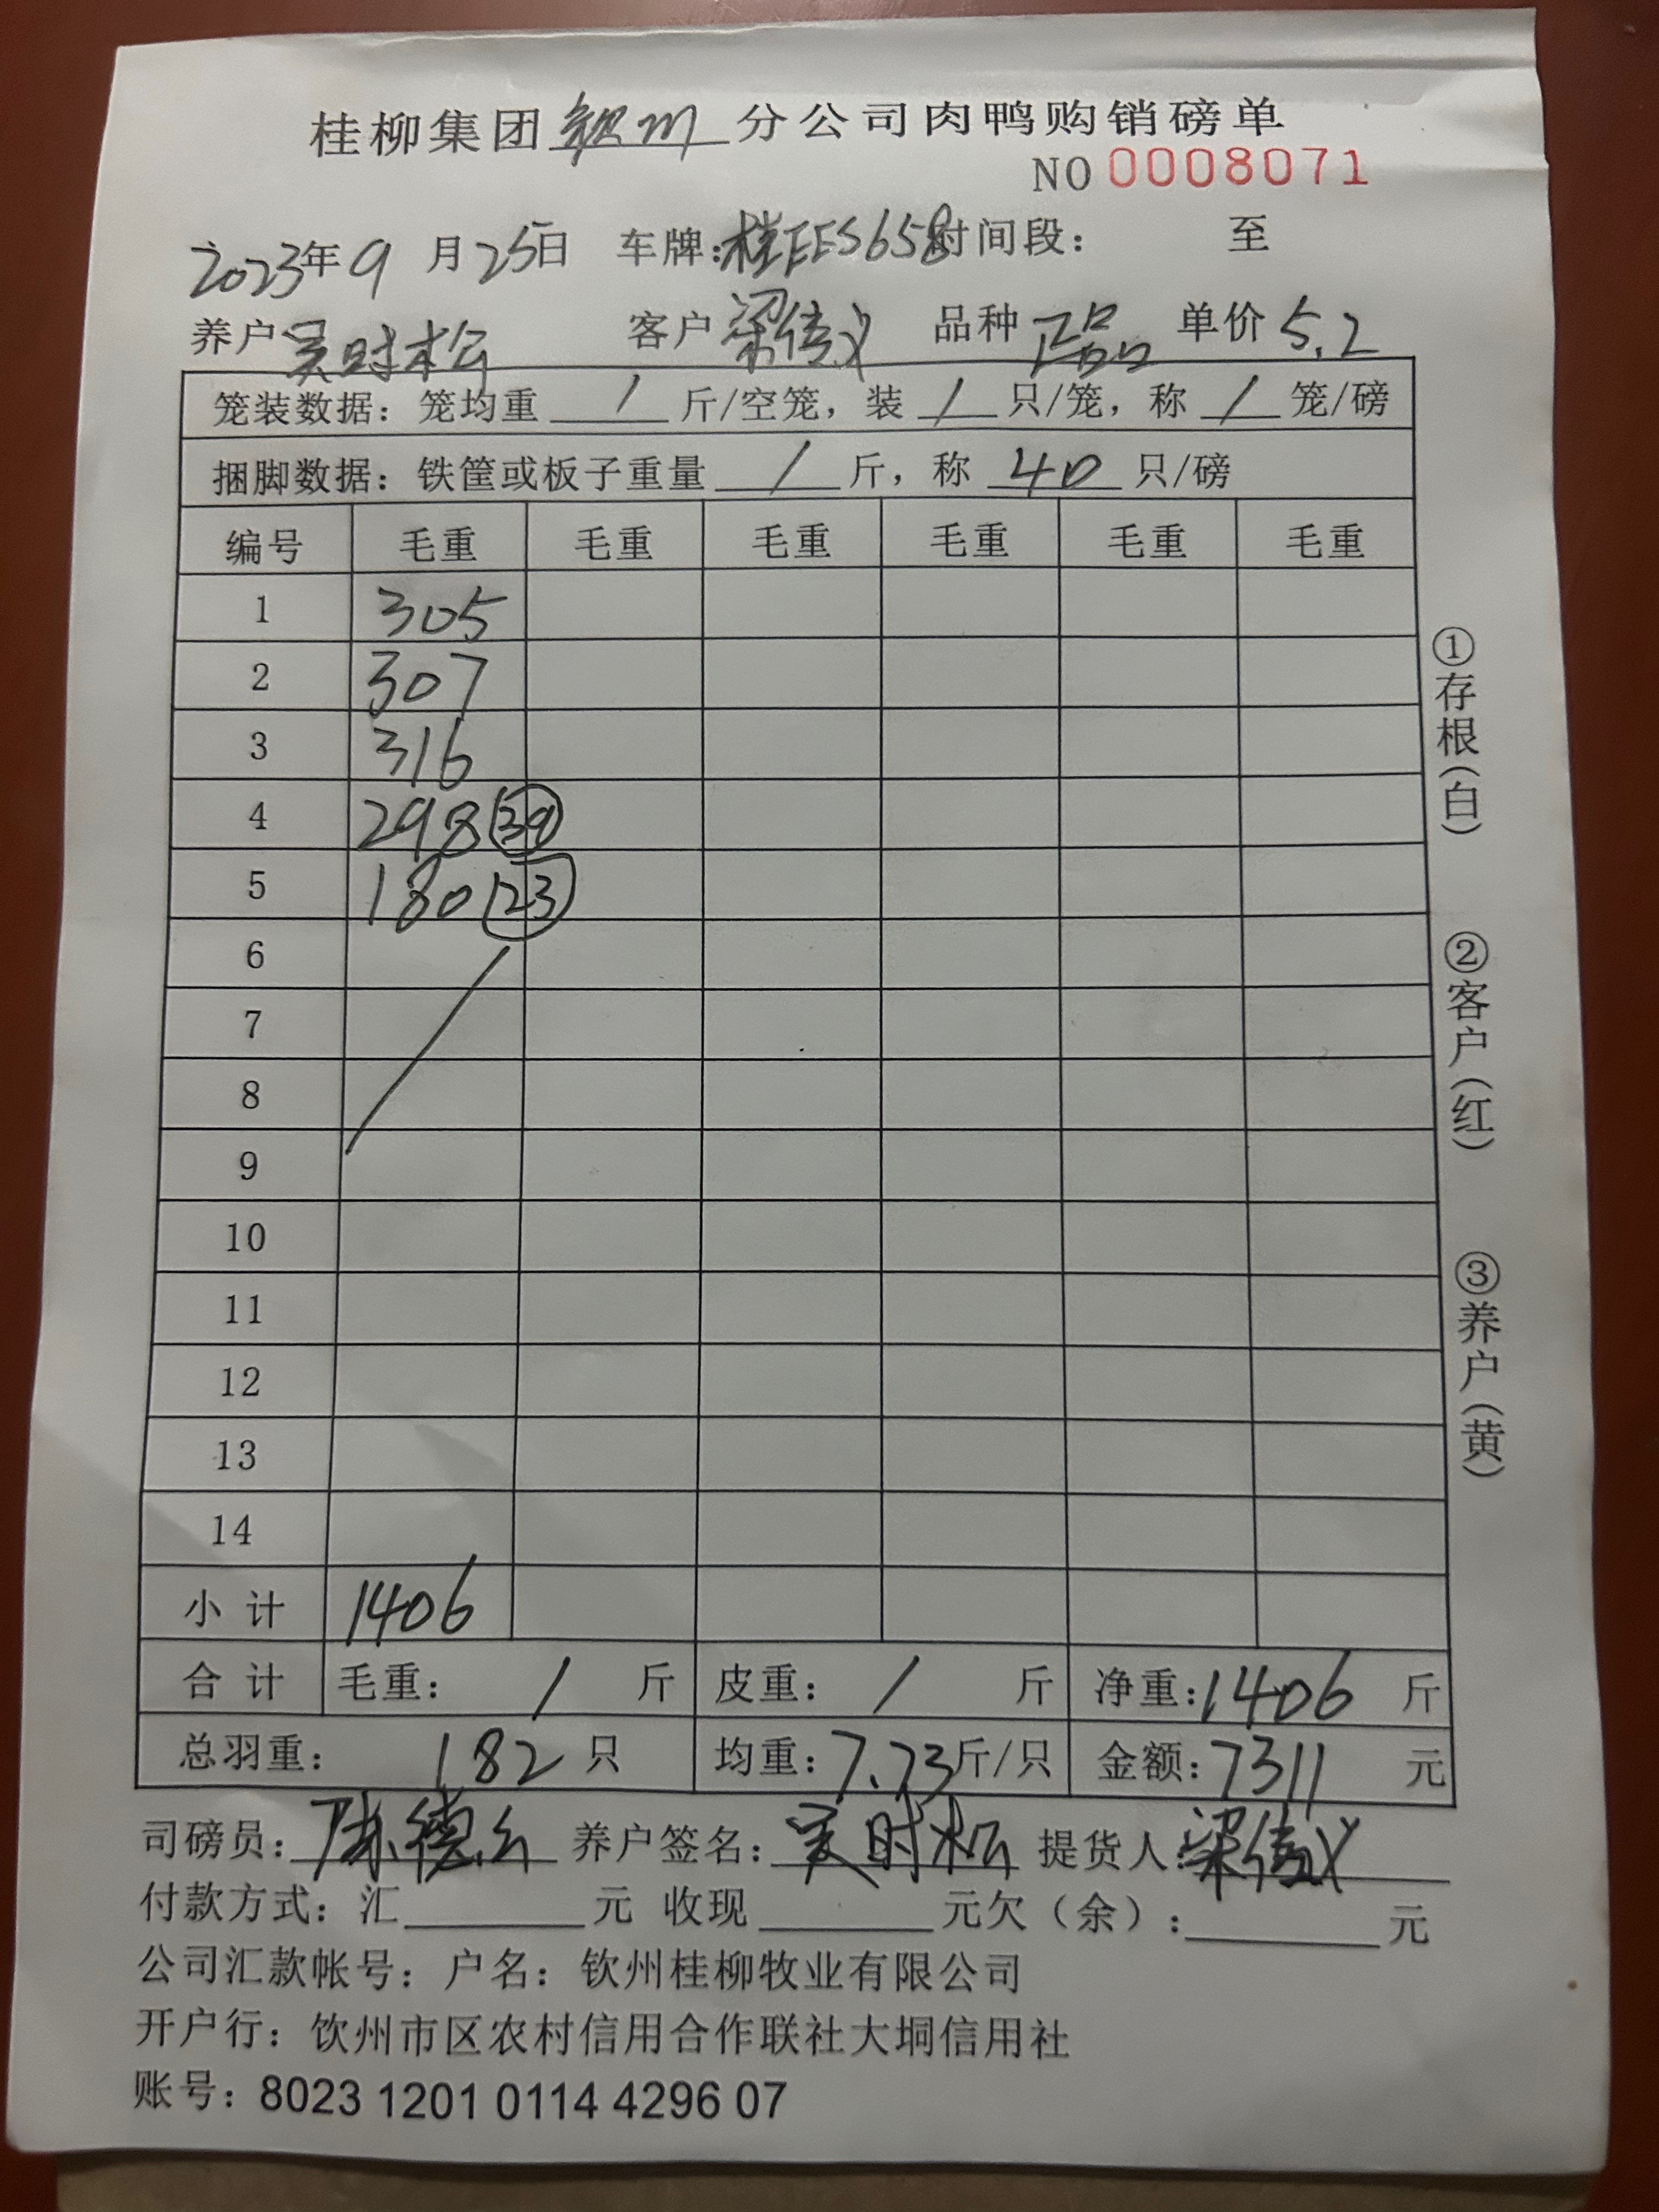 桂柳集团钦州分公司肉鸭购销磅单
NO 0008071
2023年9月25日 车牌:桂EES658时间段: 至
养户吴时松 客户梁信义 品种正品 单价5.2
笼装数据:笼均重 / 斤/空笼,装 / 只/笼,称 / 笼/磅
捆脚数据:铁筐或板子重量 / 斤,称 40 只/磅
编号 毛重 毛重 毛重 毛重 毛重 毛重
1 305
2 307
3 316
4 298 (39)
5 180 (23)
6
7
8
9
10
11
12
13
14
小计 1406
合计 毛重: / 斤 皮重: / 斤 净重:1406 斤
总羽重: 182 只 均重:7.73斤/只 金额:7311 元
司磅员:陈德 养户签名:吴时松 提货人:梁信义
付款方式:汇 元 收现 元欠(余): 元
公司汇款帐号:户名:钦州桂柳牧业有限公司
开户行:钦州市区农村信用合作联社大垌信用社
账号:8023 1201 0114 4296 07
①存根(白)
②客户(红)
③养户(黄)